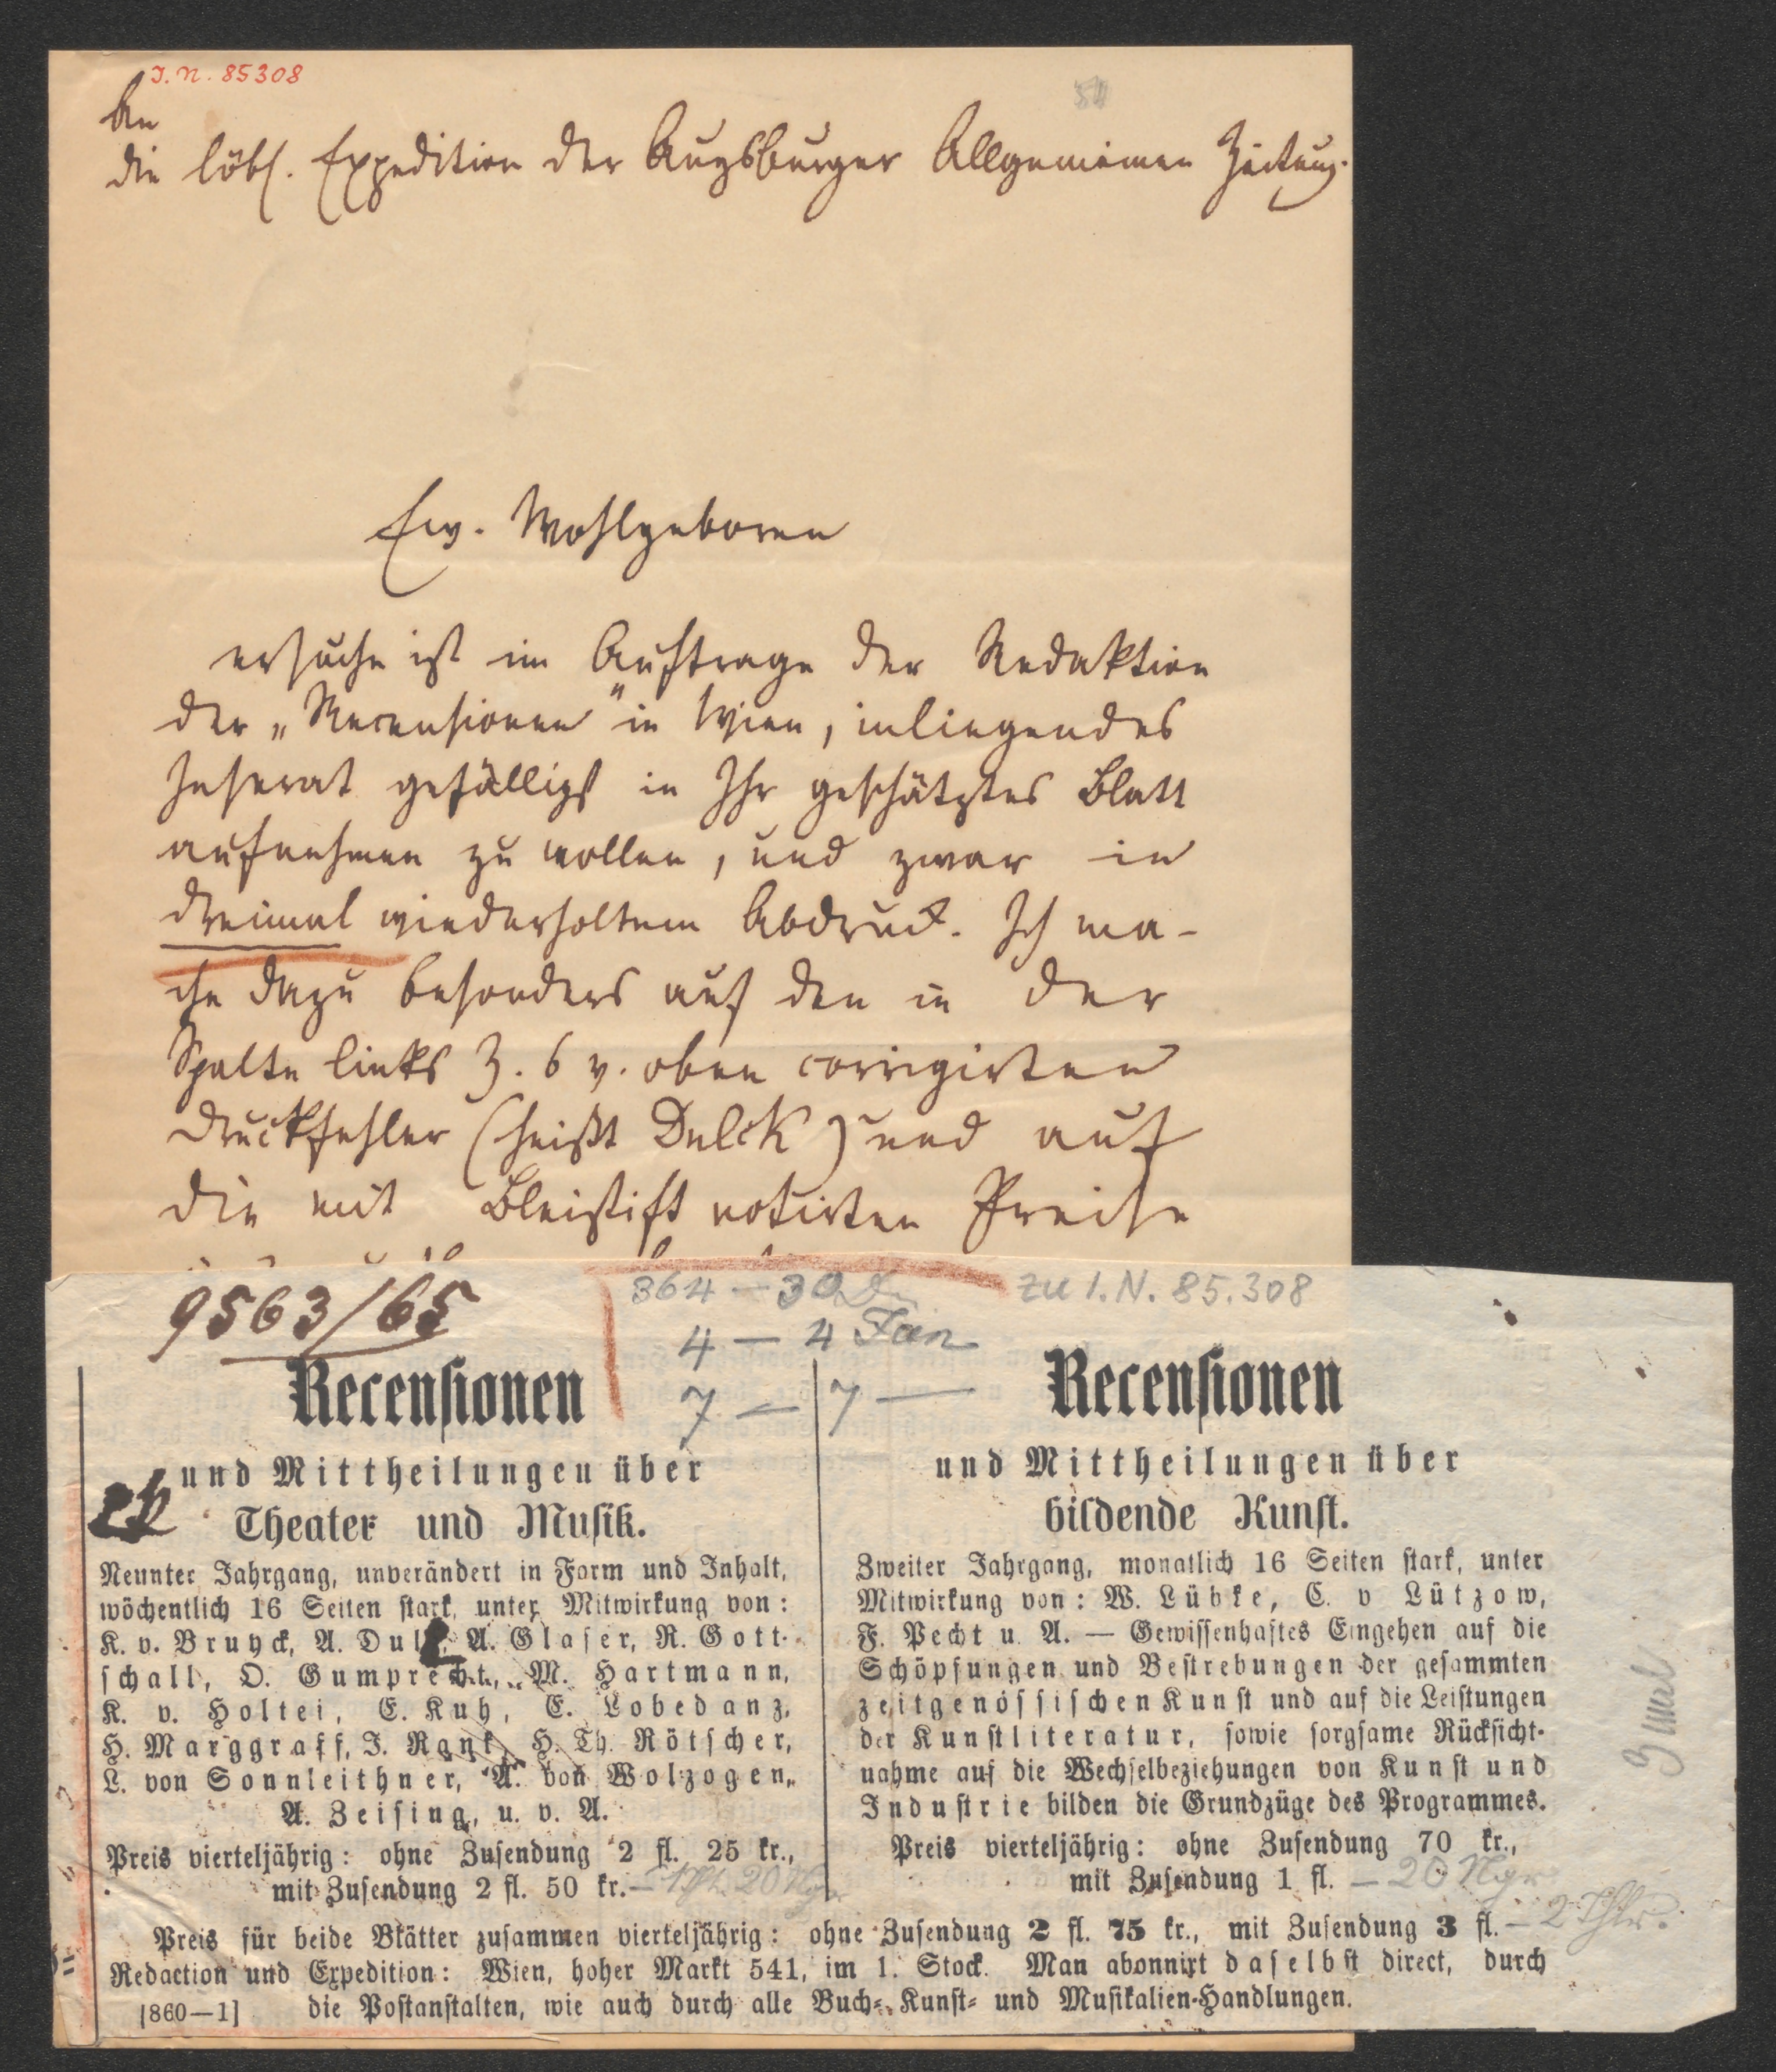 I. N. 85308
An
die löbl. Expedition der Augsburger Allgemeinen Zeitung.
Ew. Wohlgeboren
ersuche ich im Auftrage der Redaktion
der „Recensionen" in Wien, inliegendes
Inserat gefälligst in Ihr geschätztes Blatt
aufnehmen zu wollen, und zwar in
dreimal wiederholtem Abdruck. Ich ma-
che dazu besonders auf den in der
Spalte links Z. 6 v. oben corrigirten
Druckfehler (heißt Dulck) und auf
die mit Bleistift notirten Preise
9563/65
364 — 30 D
zu I.N. 85.308
4 — 4 Jan
7 — 7 —
Recensionen
und Mittheilungen über
Theater und Musik.
Neunter Jahrgang, unverändert in Form und Inhalt,
wöchentlich 16 Seiten stark, unter Mitwirkung von:
K. v. Bruyck, A. Dulk, A. Glaser, R. Gott-
schall, O. Gumprecht, M. Hartmann,
K. v. Holtei, E. Kuh, E. Lobedanz,
H. Marggraff, J. Rank, H. Th. Rötscher,
L. von Sonnleithner, A. von Wolzogen,
A. Zeising, u. v. A.
Preis vierteljährig: ohne Zusendung 2 fl. 25 kr.,
mit Zusendung 2 fl. 50 kr. — 1 Thl. 20 Ngr
Recensionen
und Mittheilungen über
bildende Kunst.
Zweiter Jahrgang, monatlich 16 Seiten stark, unter
Mitwirkung von: W. Lübke, C. v Lützow,
F. Pecht u. A. — Gewissenhaftes Eingehen auf die
Schöpfungen und Bestrebungen der gesammten
zeitgenössischen Kunst und auf die Leistungen
der Kunstliteratur, sowie sorgsame Rücksicht-
nahme auf die Wechselbeziehungen von Kunst und
Industrie bilden die Grundzüge des Programmes.
Preis vierteljährig: ohne Zusendung 70 kr.,
mit Zusendung 1 fl. — 20 Ngr
3 mal
Preis für beide Blätter zusammen vierteljährig: ohne Zusendung 2 fl. 75 kr., mit Zusendung 3 fl. — 2 Thlr.
Redaction und Expedition: Wien, hoher Markt 541, im 1. Stock. Man abonnirt daselbst direct, durch
[860—1] die Postanstalten, wie auch durch alle Buch-, Kunst- und Musikalien-Handlungen.